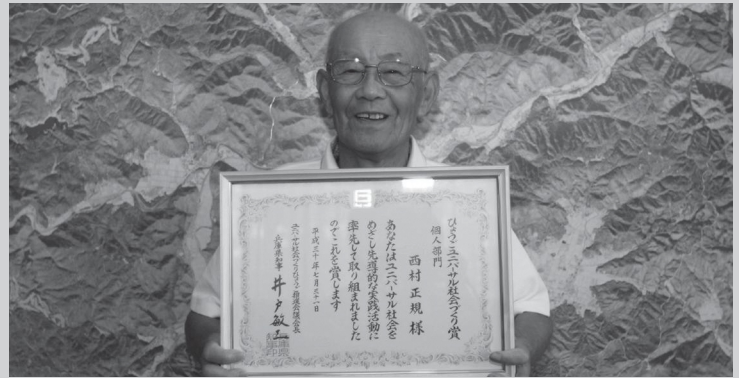 ひょうごユニバーサル社会づくり賞
個人部門
西村正規様
あなたはユニバーサル社会を
めざし先導的な実践活動に
率先して取り組まれました
のでこれを賞します
平成三十年七月三十一日
ユニバーサル社会づくりひょうご推進会議会長
兵庫県知事 井戸敏三